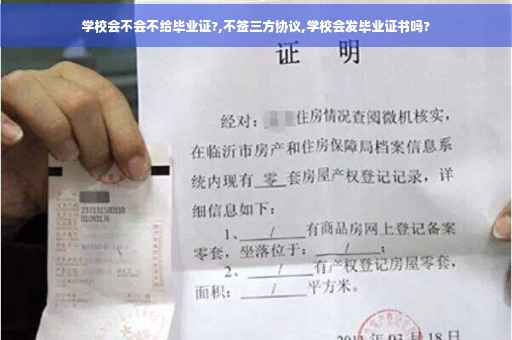 学校会不会不给毕业证?,不签三方协议,学校会发毕业证书吗?
证 明
经对: 住房情况查阅微机核实,
在临沂市房产和住房保障局档案信息系
统内现有 零 套房屋产权登记记录,详
细信息如下:
1、 / 有商品房网上登记备案
零套,坐落位于: / ;
2、 / 有产权登记房屋零套,
面积: / 平方米。
03 月 18 日